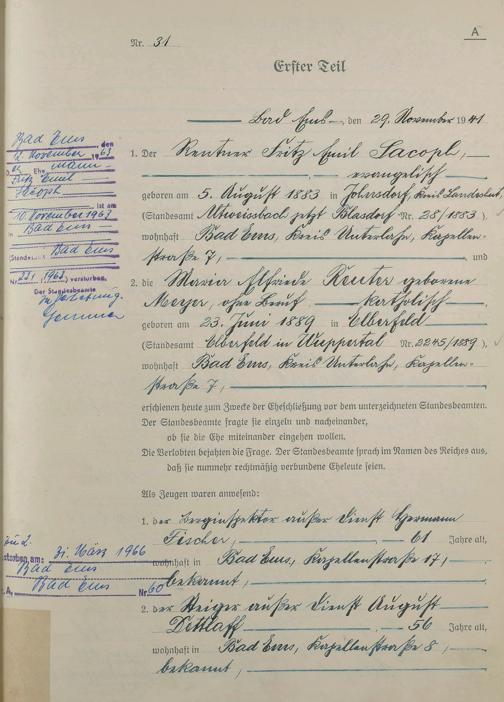 A
Nr. 31
Erster Teil
Bad Ems, den 29. November 1941
1. Der Rentner Fritz Emil Jacoph,
evangelisch
geboren am 5. August 1883 in Johnsdorf, Kreis Landeshut,
(Standesamt jetzt Blasdorf Nr. 28/1883)
wohnhaft Bad Ems, Kreis Unterlahn, Kapellen-
straße 7, und
2. die Maria Elfriede Reuter geborene
Meyer, ohne Beruf katholisch
geboren am 23. Juni 1889 in Elberfeld
(Standesamt Elberfeld in Wuppertal Nr. 2245/1889),
wohnhaft Bad Ems, Kreis Unterlahn, Kapellen-
straße 7,
erschienen heute zum Zwecke der Eheschließung vor dem unterzeichneten Standesbeamten.
Der Standesbeamte fragte sie einzeln und nacheinander,
ob sie die Ehe miteinander eingehen wollen.
Die Verlobten bejahten die Frage. Der Standesbeamte sprach im Namen des Reiches aus,
daß sie nunmehr rechtmäßig verbundene Eheleute seien.
Als Zeugen waren anwesend:
1. der Berginspektor außer Dienst Hermann
Fischer, 61 Jahre alt,
wohnhaft in Bad Ems, Kapellenstraße 17,
bekannt,
2. der Steiger außer Dienst August
Dettlaff 56 Jahre alt,
wohnhaft in Bad Ems, Kapellenstraße 8,
bekannt,
Bad Ems den
November 1963
Ehemann
Fritz Emil
Jacoph
ist am
10. November 1963
in Bad Ems
(Standesamt Bad Ems
Nr. 221/1963) verstorben.
Der Standesbeamte
In Vertretung
zu 2
gestorben am: 31. März 1966
Bad Ems
Bad Ems Nr 60